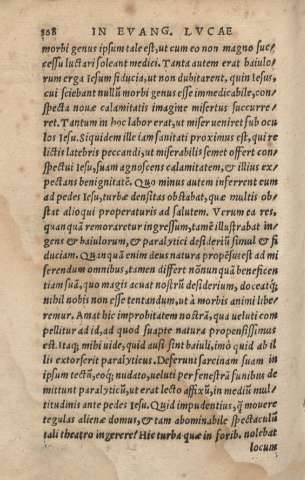 308 IN EVANG. LVCAE
morbi genus ipsum tale est, ut cum eo non magno suc-
cessu luctari soleant medici. Tanta autem erat baiulo-
rum erga Iesum fiducia, ut non dubitarent, quin Iesus,
cui sciebant nullũ morbi genus esse immedicabile, con-
specta nouae calamitatis imagine misertus succurre-
ret. Tantum in hoc labor erat, ut miser ueniret sub ocu
los Iesu. Siquidem ille iam sanitati proximus est, qui re
lictis latebris peccandi, ut miserabilis semet offert con-
spectui Iesu, suam agnoscens calamitatem, & illius ex-
pectans benignitatẽ. Quo minus autem inferrent eum
ad pedes Iesu, turbae densitas obstabat, quae multis ob-
stat alioqui properaturis ad salutem. Verum ea res,
quanquã remoraretur ingressum, tamẽ illustrabat in-
gens & baiulorum, & paralytici desideriũ simul & fi
duciam. Quanquã enim deus natura propẽsus est ad mi
serendum omnibus, tamen differt nõnunquã beneficen
tiam suã, quo magis acuat nostrũ desiderium, doceatq́;
nihil nobis non esse tentandum, ut à morbis animi libe-
remur. Amat hic improbitatem nostrã, qua ueluti com
pellitur ad id, ad quod suapte natura propensissimus
est. Itaq; mihi uide, quid ausi sint baiuli, imò quid ab il
lis extorserit paralyticus. Deferunt sarcinam suam in
ipsum tectũ, eoq́; nudato, ueluti per fenestrã funibus de
mittunt paralyticũ, ut erat lecto affixũ, in mediũ mul-
titudinis ante pedes Iesu. Quid impudentius, q̃ mouere
tegulas alienae domus, & tam abominabile spectaculũ
tali theatro ingerere? Hic turba quae in forib. nolebat
locum